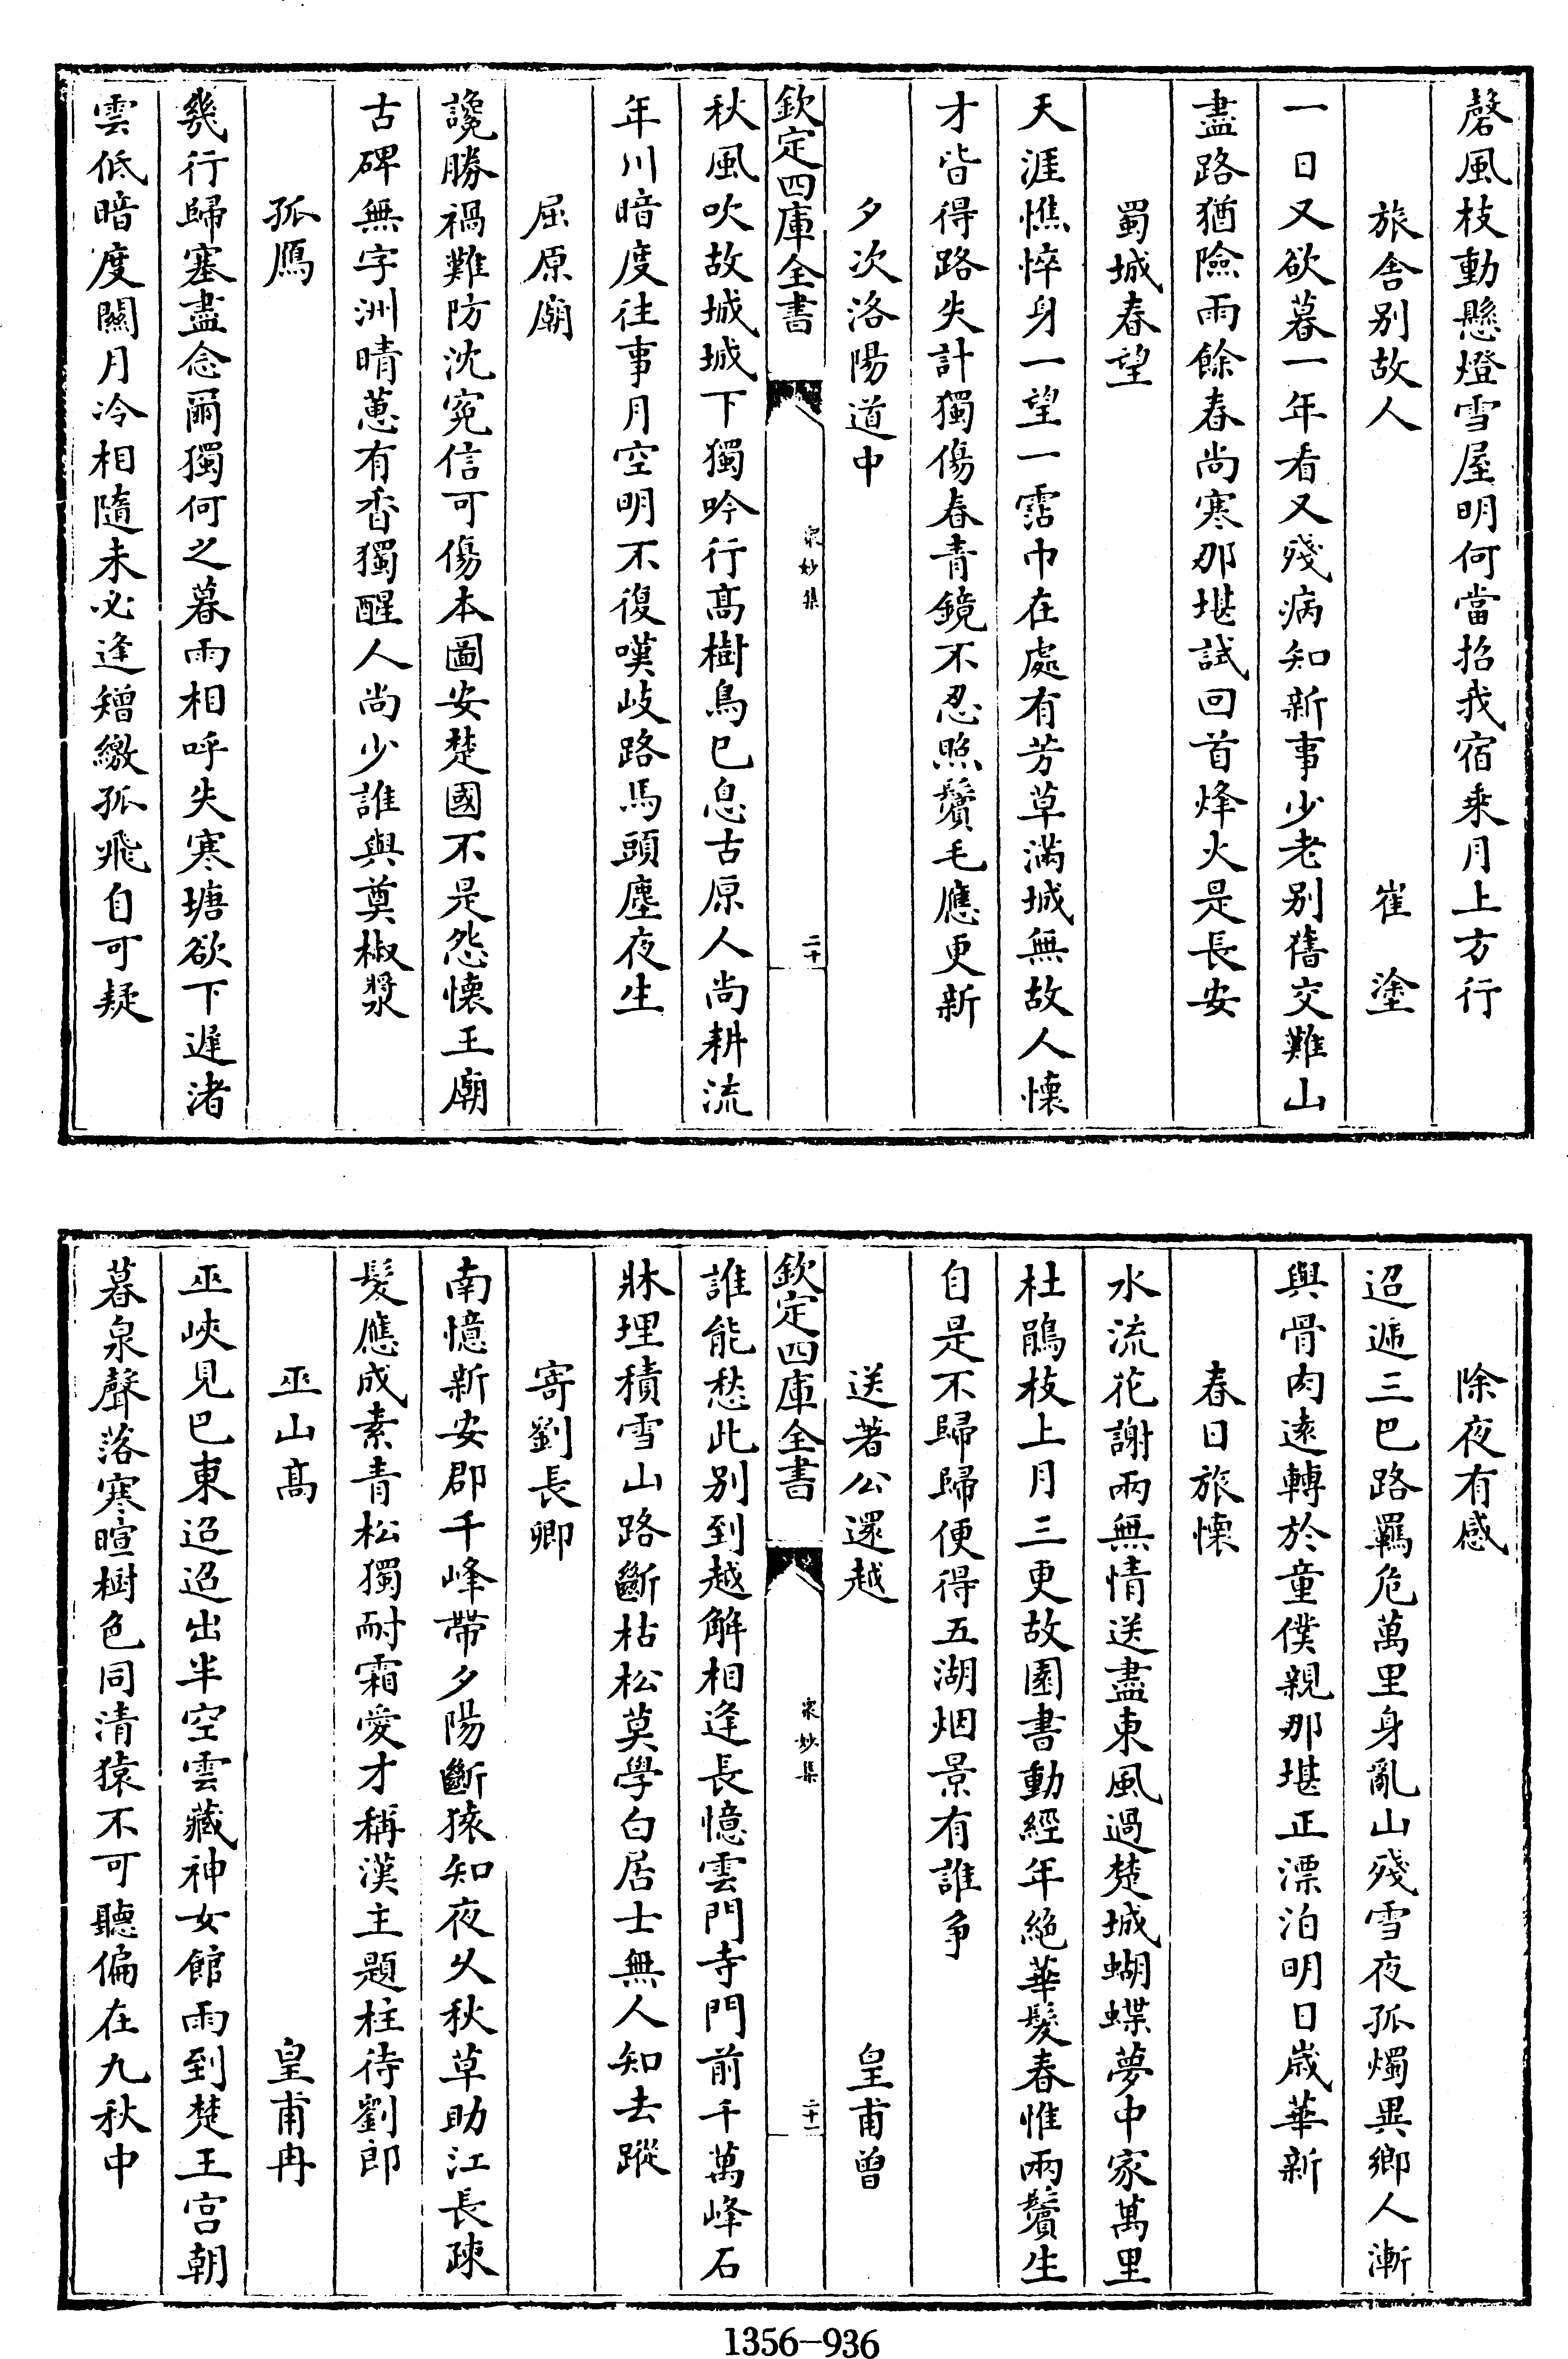 磬風枝動懸燈雪屋明何當招我宿乘月上方行
旅舍别故人　崔塗
一日又欲暮一年看又殘病知新事少老别舊交難山
盡路猶險雨餘春尚寒那堪試回首烽火是長安
蜀城春望
天涯憔悴身一望一霑巾在處有芳草滿城無故人懷
才皆得路失計獨傷春青鏡不忍照鬢毛應更新
夕次洛陽道中
欽定四庫全書
衆妙集
二十
秋風吹故城城下獨吟行髙樹鳥已息古原人尚耕流
年川暗度往事月空明不復嘆岐路馬頭塵夜生
屈原廟
讒勝禍難防沈寃信可傷本圖安楚國不是怨懷王廟
古碑無字洲晴蕙有香獨醒人尚少誰與奠椒漿
孤鴈
幾行歸塞盡念爾獨何之暮雨相呼失寒塘欲下遲渚
雲低暗度關月冷相隨未必逢矰繳孤飛自可疑
除夜有感
迢遞三巴路羈危萬里身亂山殘雪夜孤燭異鄉人漸
與骨肉遠轉於童僕親那堪正漂泊明日歲華新
春日旅懷
水流花謝兩無情送盡東風過楚城蝴蝶夢中家萬里
杜鵑枝上月三更故園書動經年絶華髮春惟兩鬢生
自是不歸歸便得五湖烟景有誰爭
送著公還越　皇甫曾
欽定四庫全書
衆妙集
二十一
誰能愁此别到越解相逢長憶雲門寺門前千萬峰石
牀埋積雪山路斷枯松莫學白居士無人知去蹤
寄劉長卿
南憶新安郡千峰帶夕陽斷猿知夜久秋草助江長疎
髮應成素青松獨耐霜愛才稱漢主題柱待劉郎
巫山髙　皇甫冉
巫峽見巴東迢迢出半空雲藏神女館雨到楚王宫朝
暮泉聲落寒暄樹色同清猿不可聽偏在九秋中
1356-936